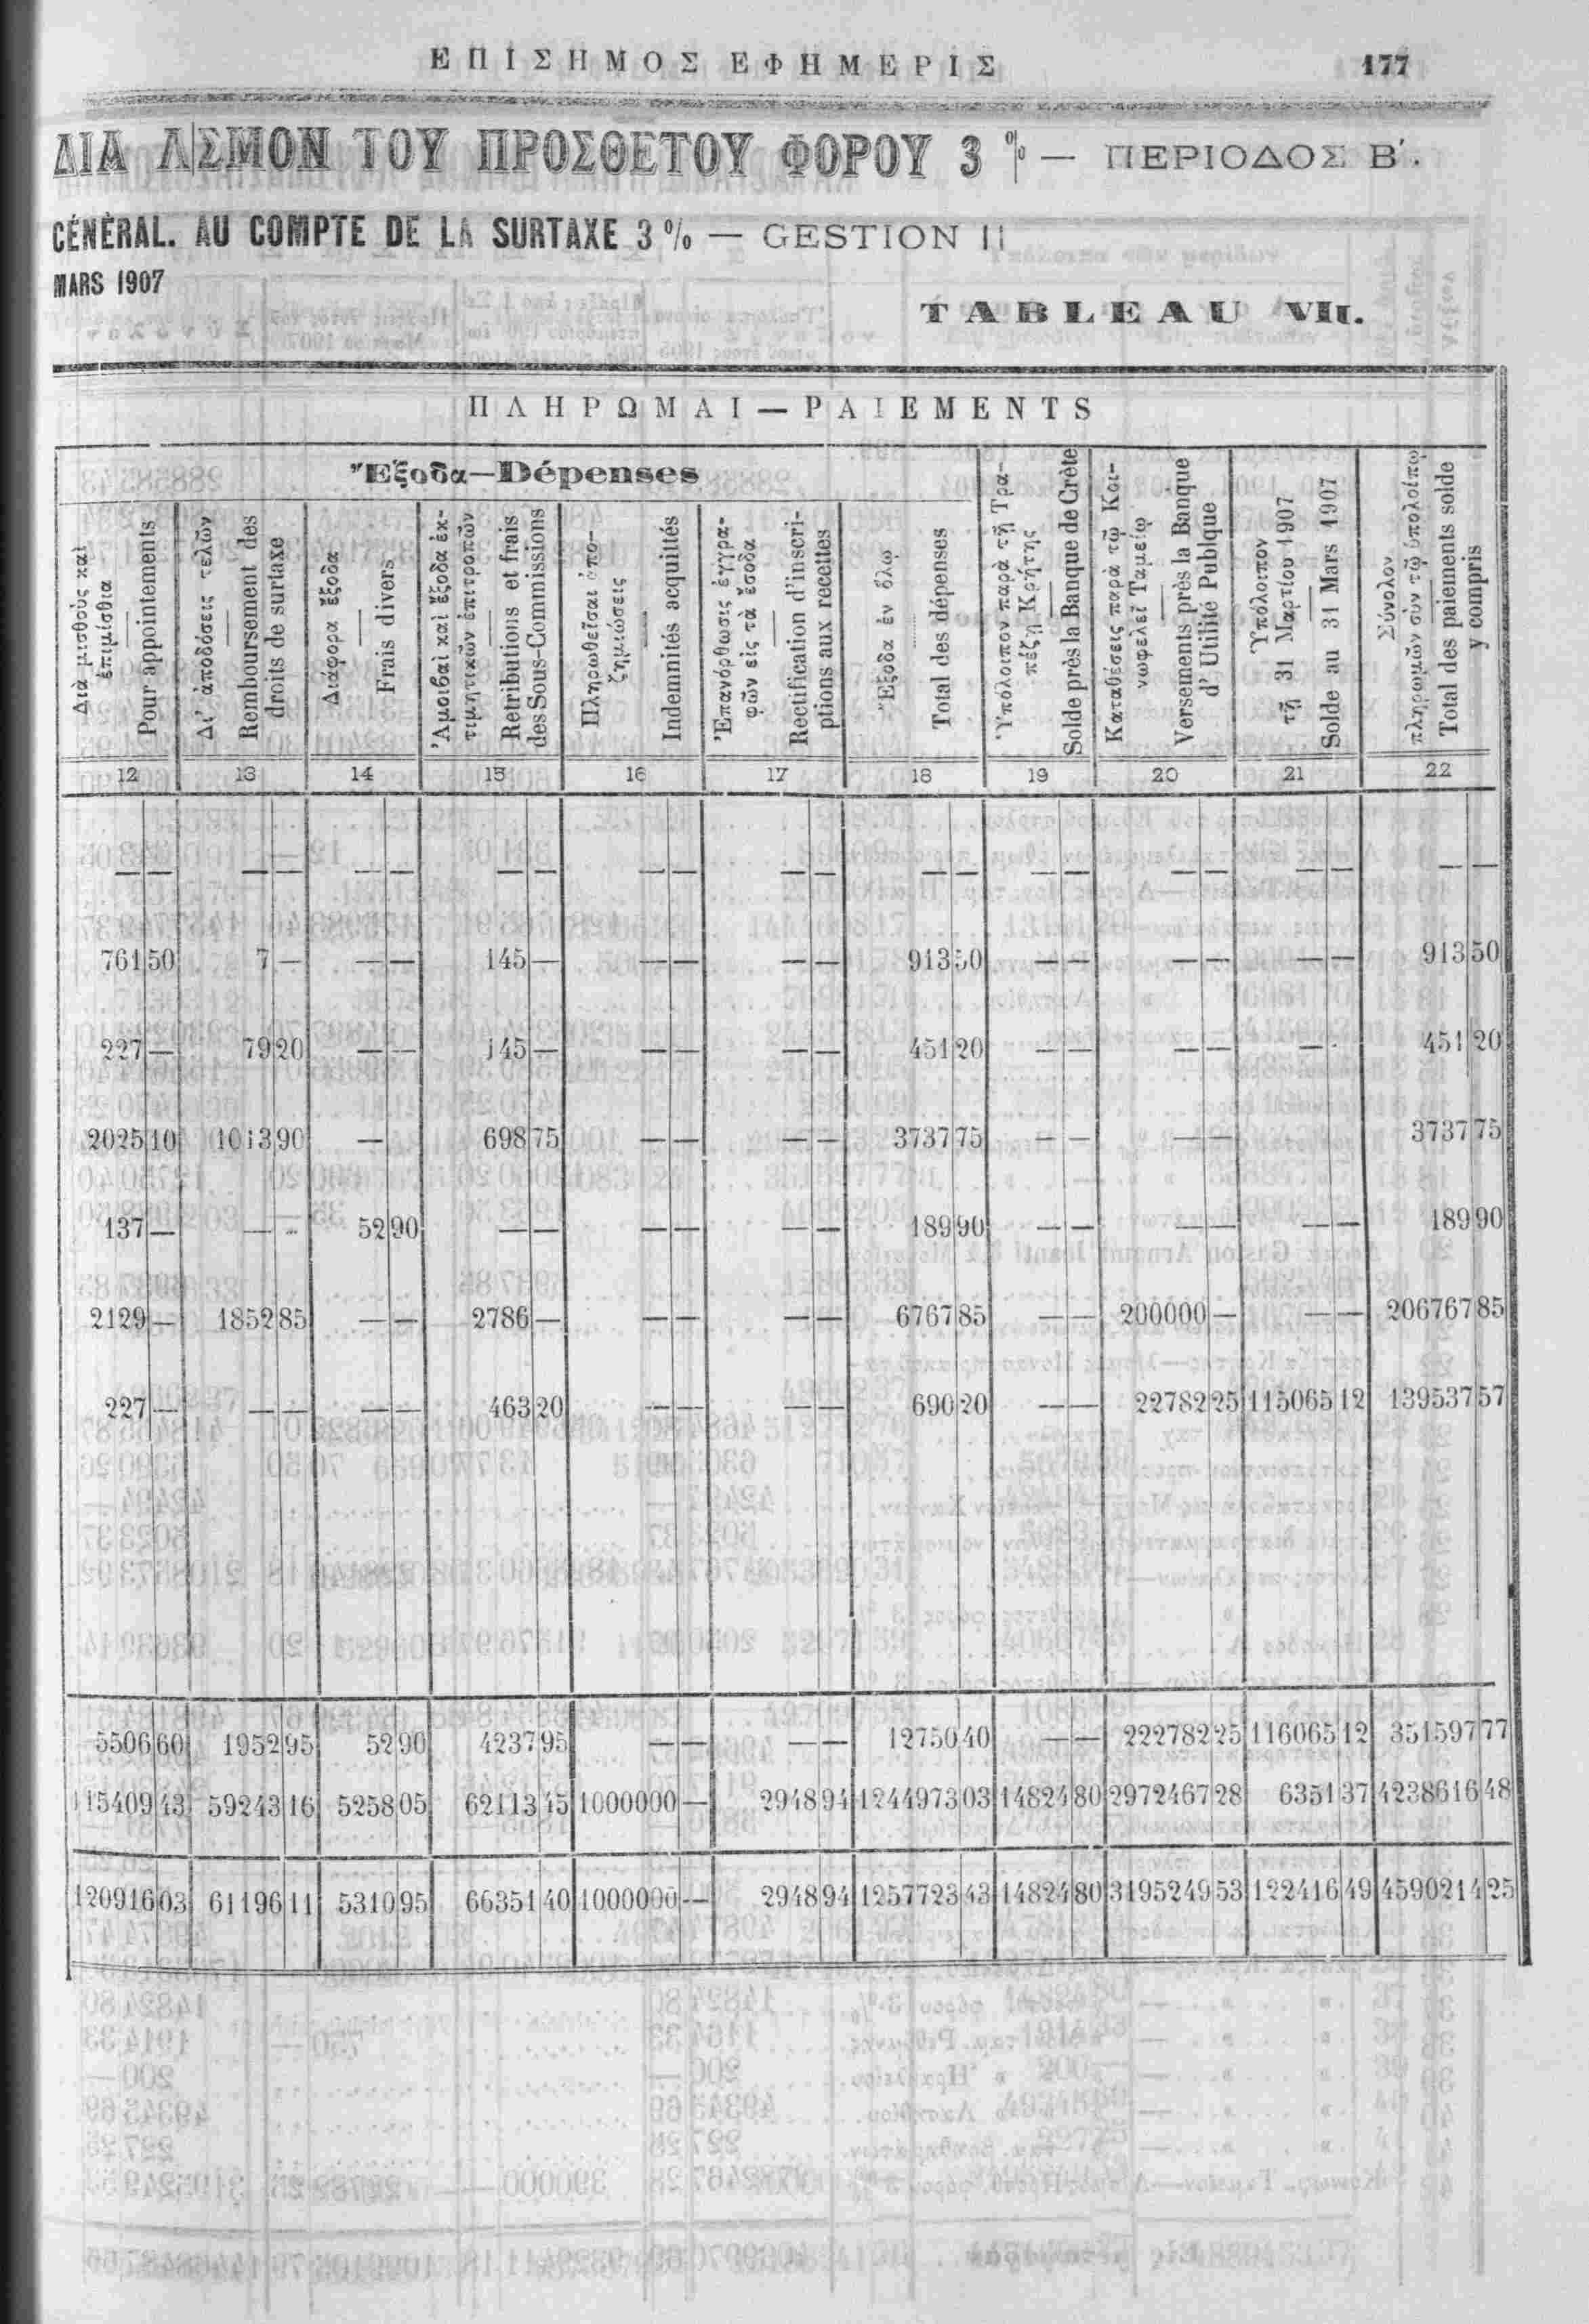 ΕΠΙΣΗΜΟΣ ΕΦΗΜΕΡΙΣ 177
ΔΙΑ ΛΣΜΟΝ ΤΟΥ ΠΡΟΣΘΕΤΟΥ ΦΟΡΟΥ 3 % — ΠΕΡΙΟΔΟΣ Β΄.
CÉNÉRAL. AU COMPTE DE LA SURTAXE 3 % — GESTION II
MARS 1907
TABLEAU VII.
ΠΛΗΡΩΜΑΙ — PAIEMENTS
Ἔξοδα—Dépenses
Διὰ μισθοὺς καὶ ἐπιμίσθια — Pour appointements
Δι' ἀποδόσεις τελῶν — Remboursement des droits de surtaxe
Διάφορα ἔξοδα — Frais divers
Ἀμοιβαὶ καὶ ἔξοδα ἐκτιμητικῶν ἐπιτροπῶν — Retributions et frais des Sous-Commissions
Πληρωθεῖσαι ἀποζημιώσεις — Indemnités acquittés
Ἐπανόρθωσις ἐγγραφῶν εἰς τὰ ἔσοδα — Rectification d'inscriptions aux recettes
Ἔξοδα ἐν ὅλῳ — Total des dépenses
Ὑπόλοιπον παρὰ τῇ Τραπέζῃ Κρήτης — Solde près la Banque de Crète
Καταθέσεις παρὰ τῷ Κοινωφελεῖ Ταμείῳ — Versements près la Banque d' Utilité Publque
Ὑπόλοιπον τῇ 31 Μαρτίου 1907 — Solde au 31 Mars 1907
Σύνολον πληρωμῶν σὺν τῷ ὑπολοίπῳ — Total des paiements solde y compris
12 13 14 15 16 17 18 19 20 21 22
— — — — — — — — — — — — — — — — — — — — — —
761 50 7 — — — 145 — — — — — 913 50 — — — — — — 913 50
227 — 79 20 — — 145 — — — — — 451 20 — — — — — 451 20
2025 10 1013 90 — 698 75 — — — — 3737 75 — — — — 3737 75
137 — — — 52 90 — — — — — — 189 90 — — — — — — 189 90
2129 — 1852 85 — — 2786 — — — — — 6767 85 — — 200000 — — — 206767 85
227 — — — — — 463 20 — — — — 690 20 — — 22782 25 115065 12 139537 57
5506 60 1952 95 52 90 4237 95 — — — — 12750 40 — — 222782 25 116065 12 351597 77
115409 43 59243 16 5258 05 62113 45 1000000 — 2948 94 1244973 03 14824 80 2972467 28 6351 37 4238616 48
120916 03 61196 11 5310 95 66351 40 1000000 — 2948 94 1257723 43 14824 80 3195249 53 122416 49 4590214 25